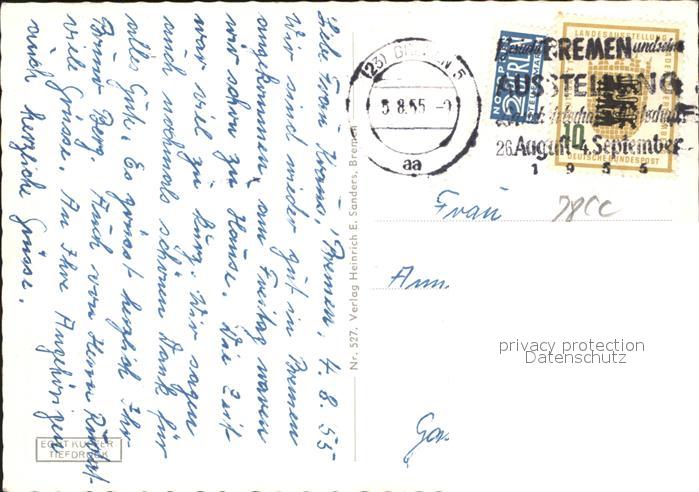 Bremen, 4. 8. 55-
Liebe Frau
Wir sind wieder gut in Bremen
angekommen, am Freitag waren
wir schon zu Hause. Die Zeit
war viel zu kurz. Wir sagen
auch nochmals schönen Dank für
alles Gute. Es grüsst herzlich Ihr
Bruno Berg.
Auch von Herrn
viel Grüsse. An Ihre Angehörigen
auch herzliche Grüsse.
ECHT KUPFER
TIEFDRUCK
Nr. 527. Verlag Heinrich E. Sanders, Bremen
(23) BREMEN 5
5.8.55
aa
NOTOPFER
2 BERLIN
STEUERMARKE
LANDESAUSSTELLUNG
10
DEUTSCHE BUNDESPOST
BREMEN und seine
AUSSTELLUNG
26. August - 4. September
1 9 5 5
Frau
Ann
privacy protection
Datenschutz